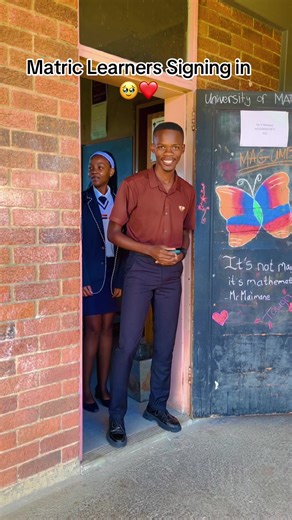 Matric Learners Signing in
🥹❤️
University of MAT
MAGIUMP
It's not ma
it's mathemat
Mr Maimane